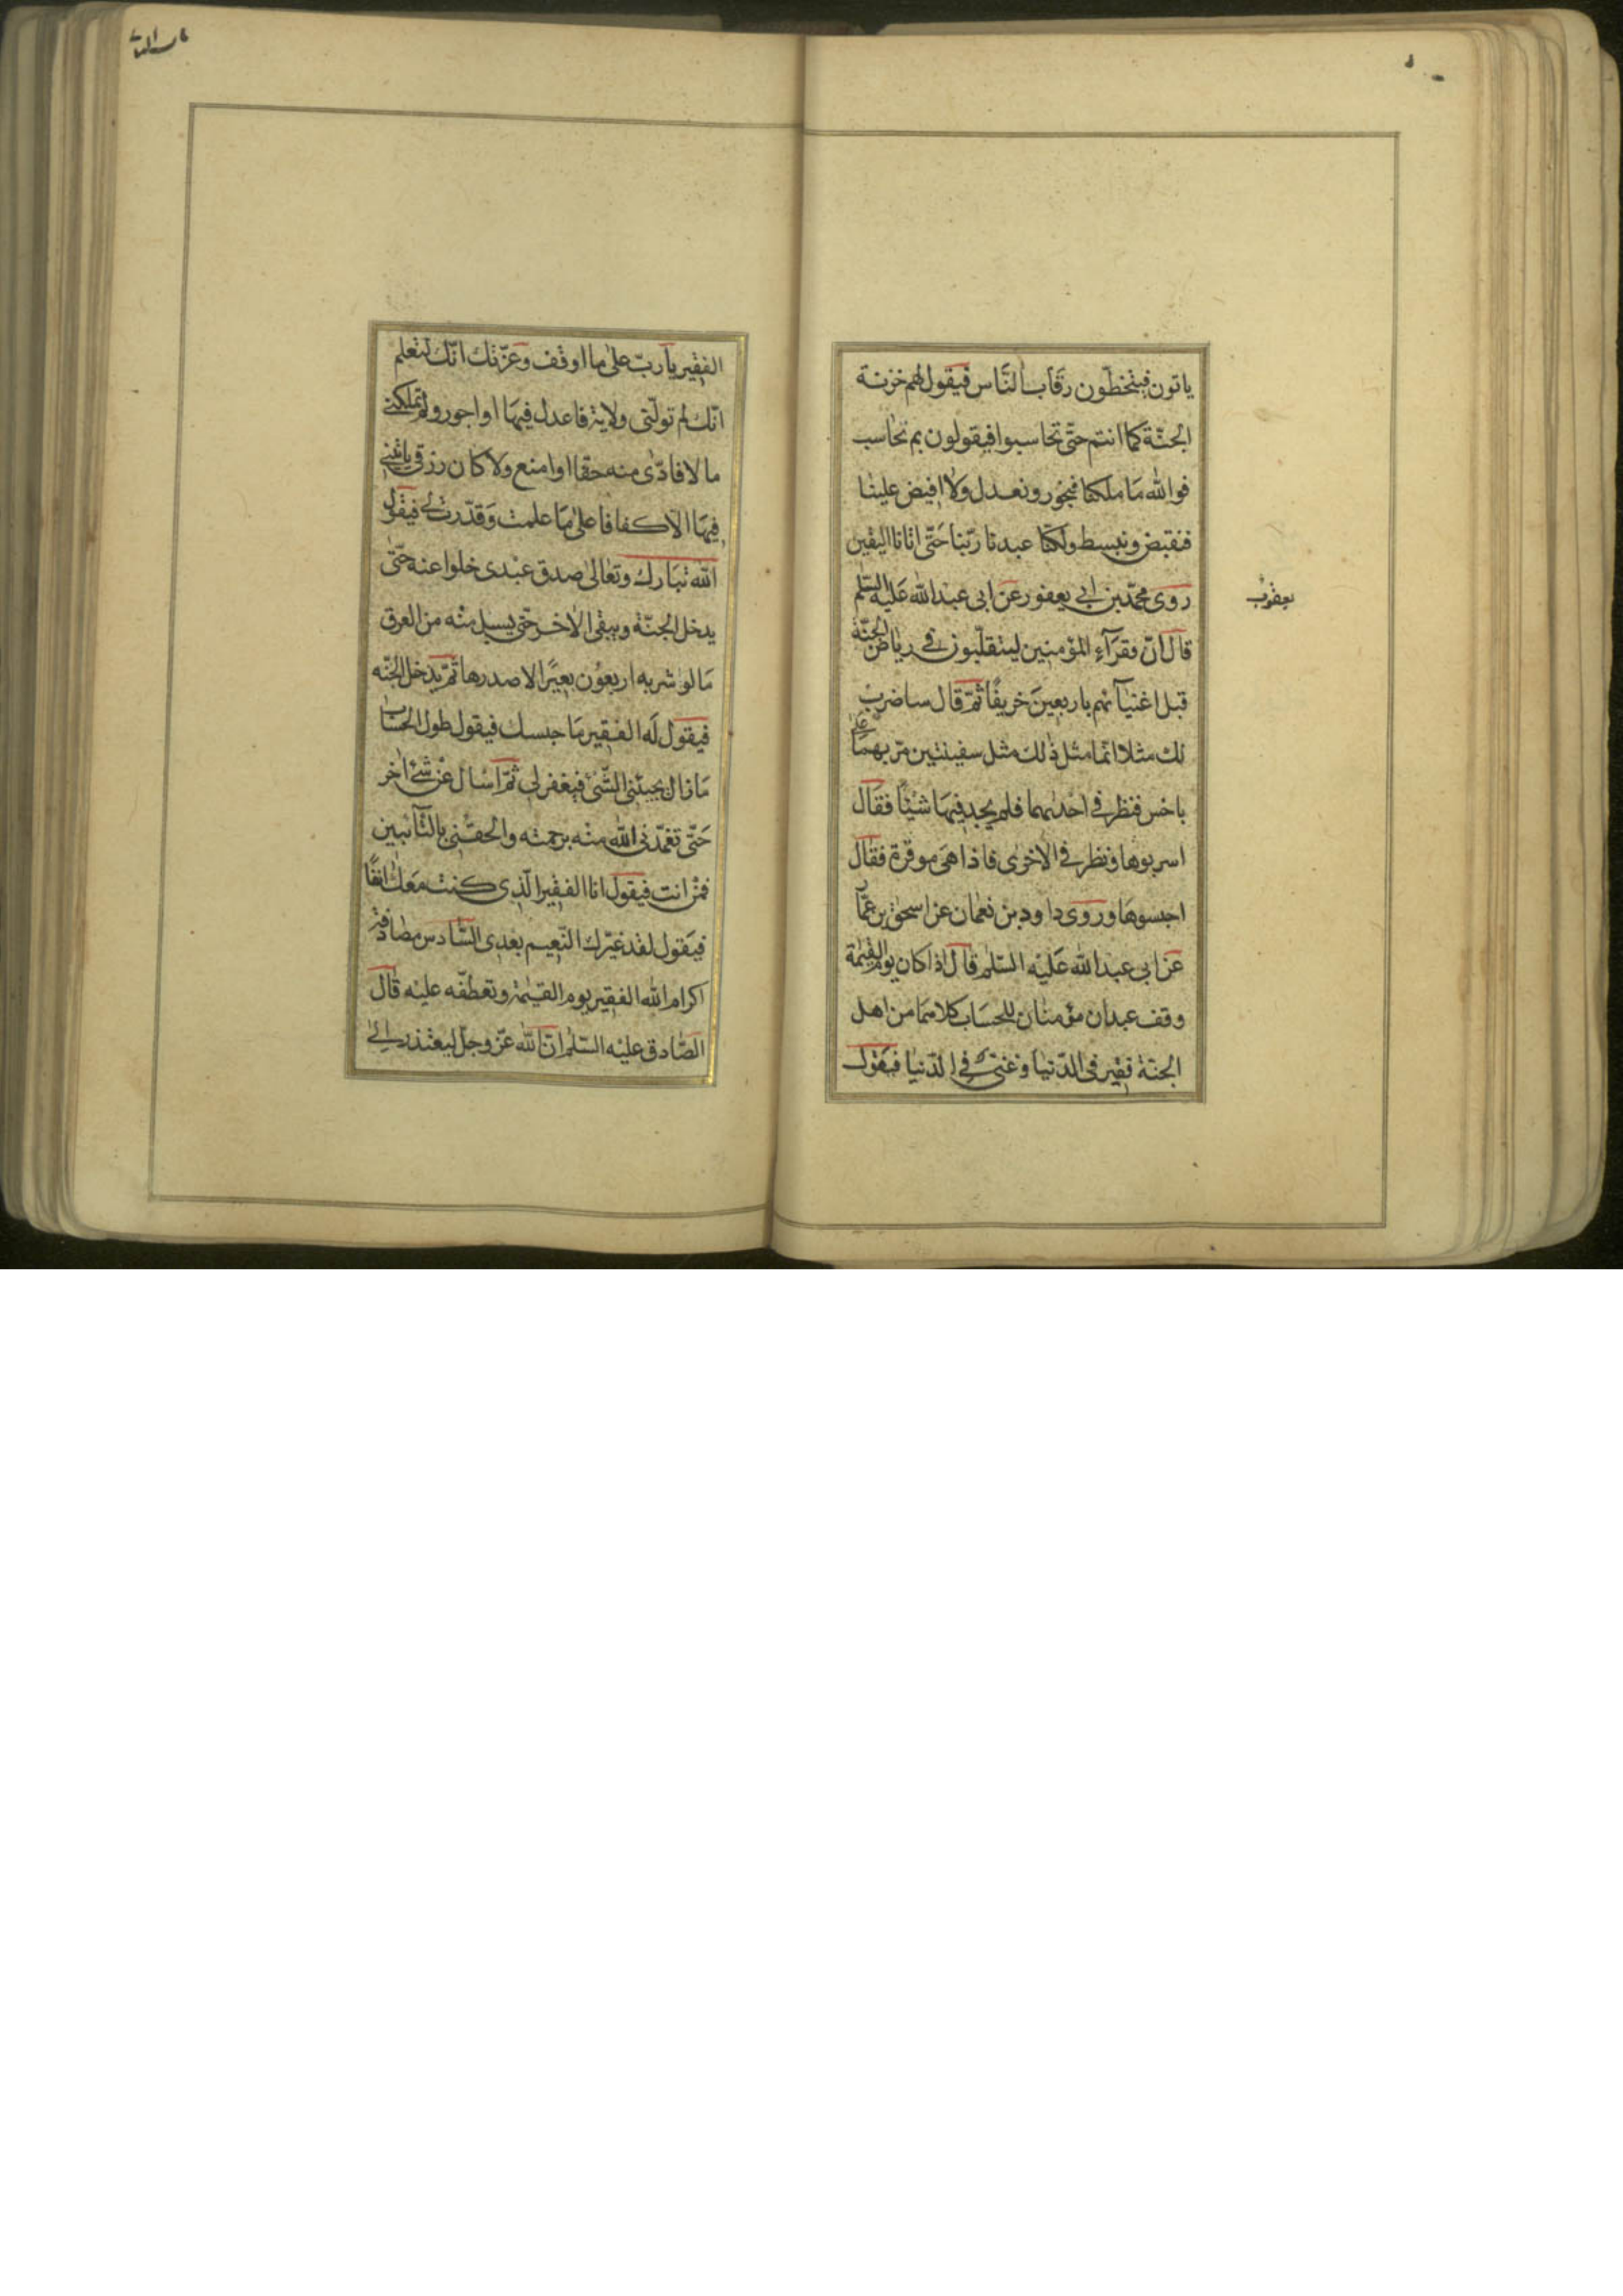 ياتون فيتخطّون رقاب النّاس فيقول لهم خزنة
الجنّة كما انتم حتّى تحاسبوا فيقولون بم نحاسب
فوالله ما ملكنا فنجور ونعدل ولا افيض علينا
فنقبض ونبسط ولكنّا عبدنا ربّنا حتّى اتانا اليقين
روى محمّد بن ابي يعفور عن ابى عبد الله عليه السّلم
يعفوب
قال انّ فقرآء المؤمنين ليتقلّبون في رياض الجنّة
قبل اغنيآئهم باربعين خريفًا ثمّ قال ساضرب
لك مثلا انّما مثل ذلك مثل سفينتين مرّ بهما على
باخس فنظر في احدٰيهما فلم يجد فيها شيئا فقال
اسربوها ونظر في الاخرى فاذا هى موقرة فقال
احبسوها وروى داود بن نعمان عن اسحق بن عمّار
عن ابى عبد الله عليه السّلم قال اذا كان يوم القيٰمة
وقف عبدان مؤمنان للحساب كلاهما من اهل
الجنّة فقير فى الدّنيا وغنىّ في الدّنيا فيقول
الفقير يا ربّ على ما اوقف وعزّتك انّك لتعلم
انّك لم تولّنى ولاية فاعدل فيها او اجور ولم تملكني
مالا فاؤدّى منه حقا او امنع ولا كان رزقى ياتيني
فيها الا كفافا على ما علمت وقدّرت لي فيقول
الله تبارك وتعالى صدق عبدى خلوا عنه حتّى
يدخل الجنّة ويبقى الاخر حتى يسيل منه من العرق
ما لو شربه اربعون بعيرًا لاصدرها ثمّ يدخل الجنّه
فيقول له الفقير ما حبسك فيقول طول الحساب
ما زال يجيئنى الشّئ فيغفر لى ثمّ اسال عن شئ اخر
حتّى تغمّدنى الله منه برحمته والحقنى بالتّآئبين
فمن انت فيقول انا الفقير الّذى كنت معك انفًا
فيقول لقد غيّرك النّعيم بعدى السّادس مصادفة
اكرام الله الفقير يوم القيٰمة وتعطّفه عليه قال
الصّادق عليه السّلم انّ الله عزّ وجلّ ليعتذر الى